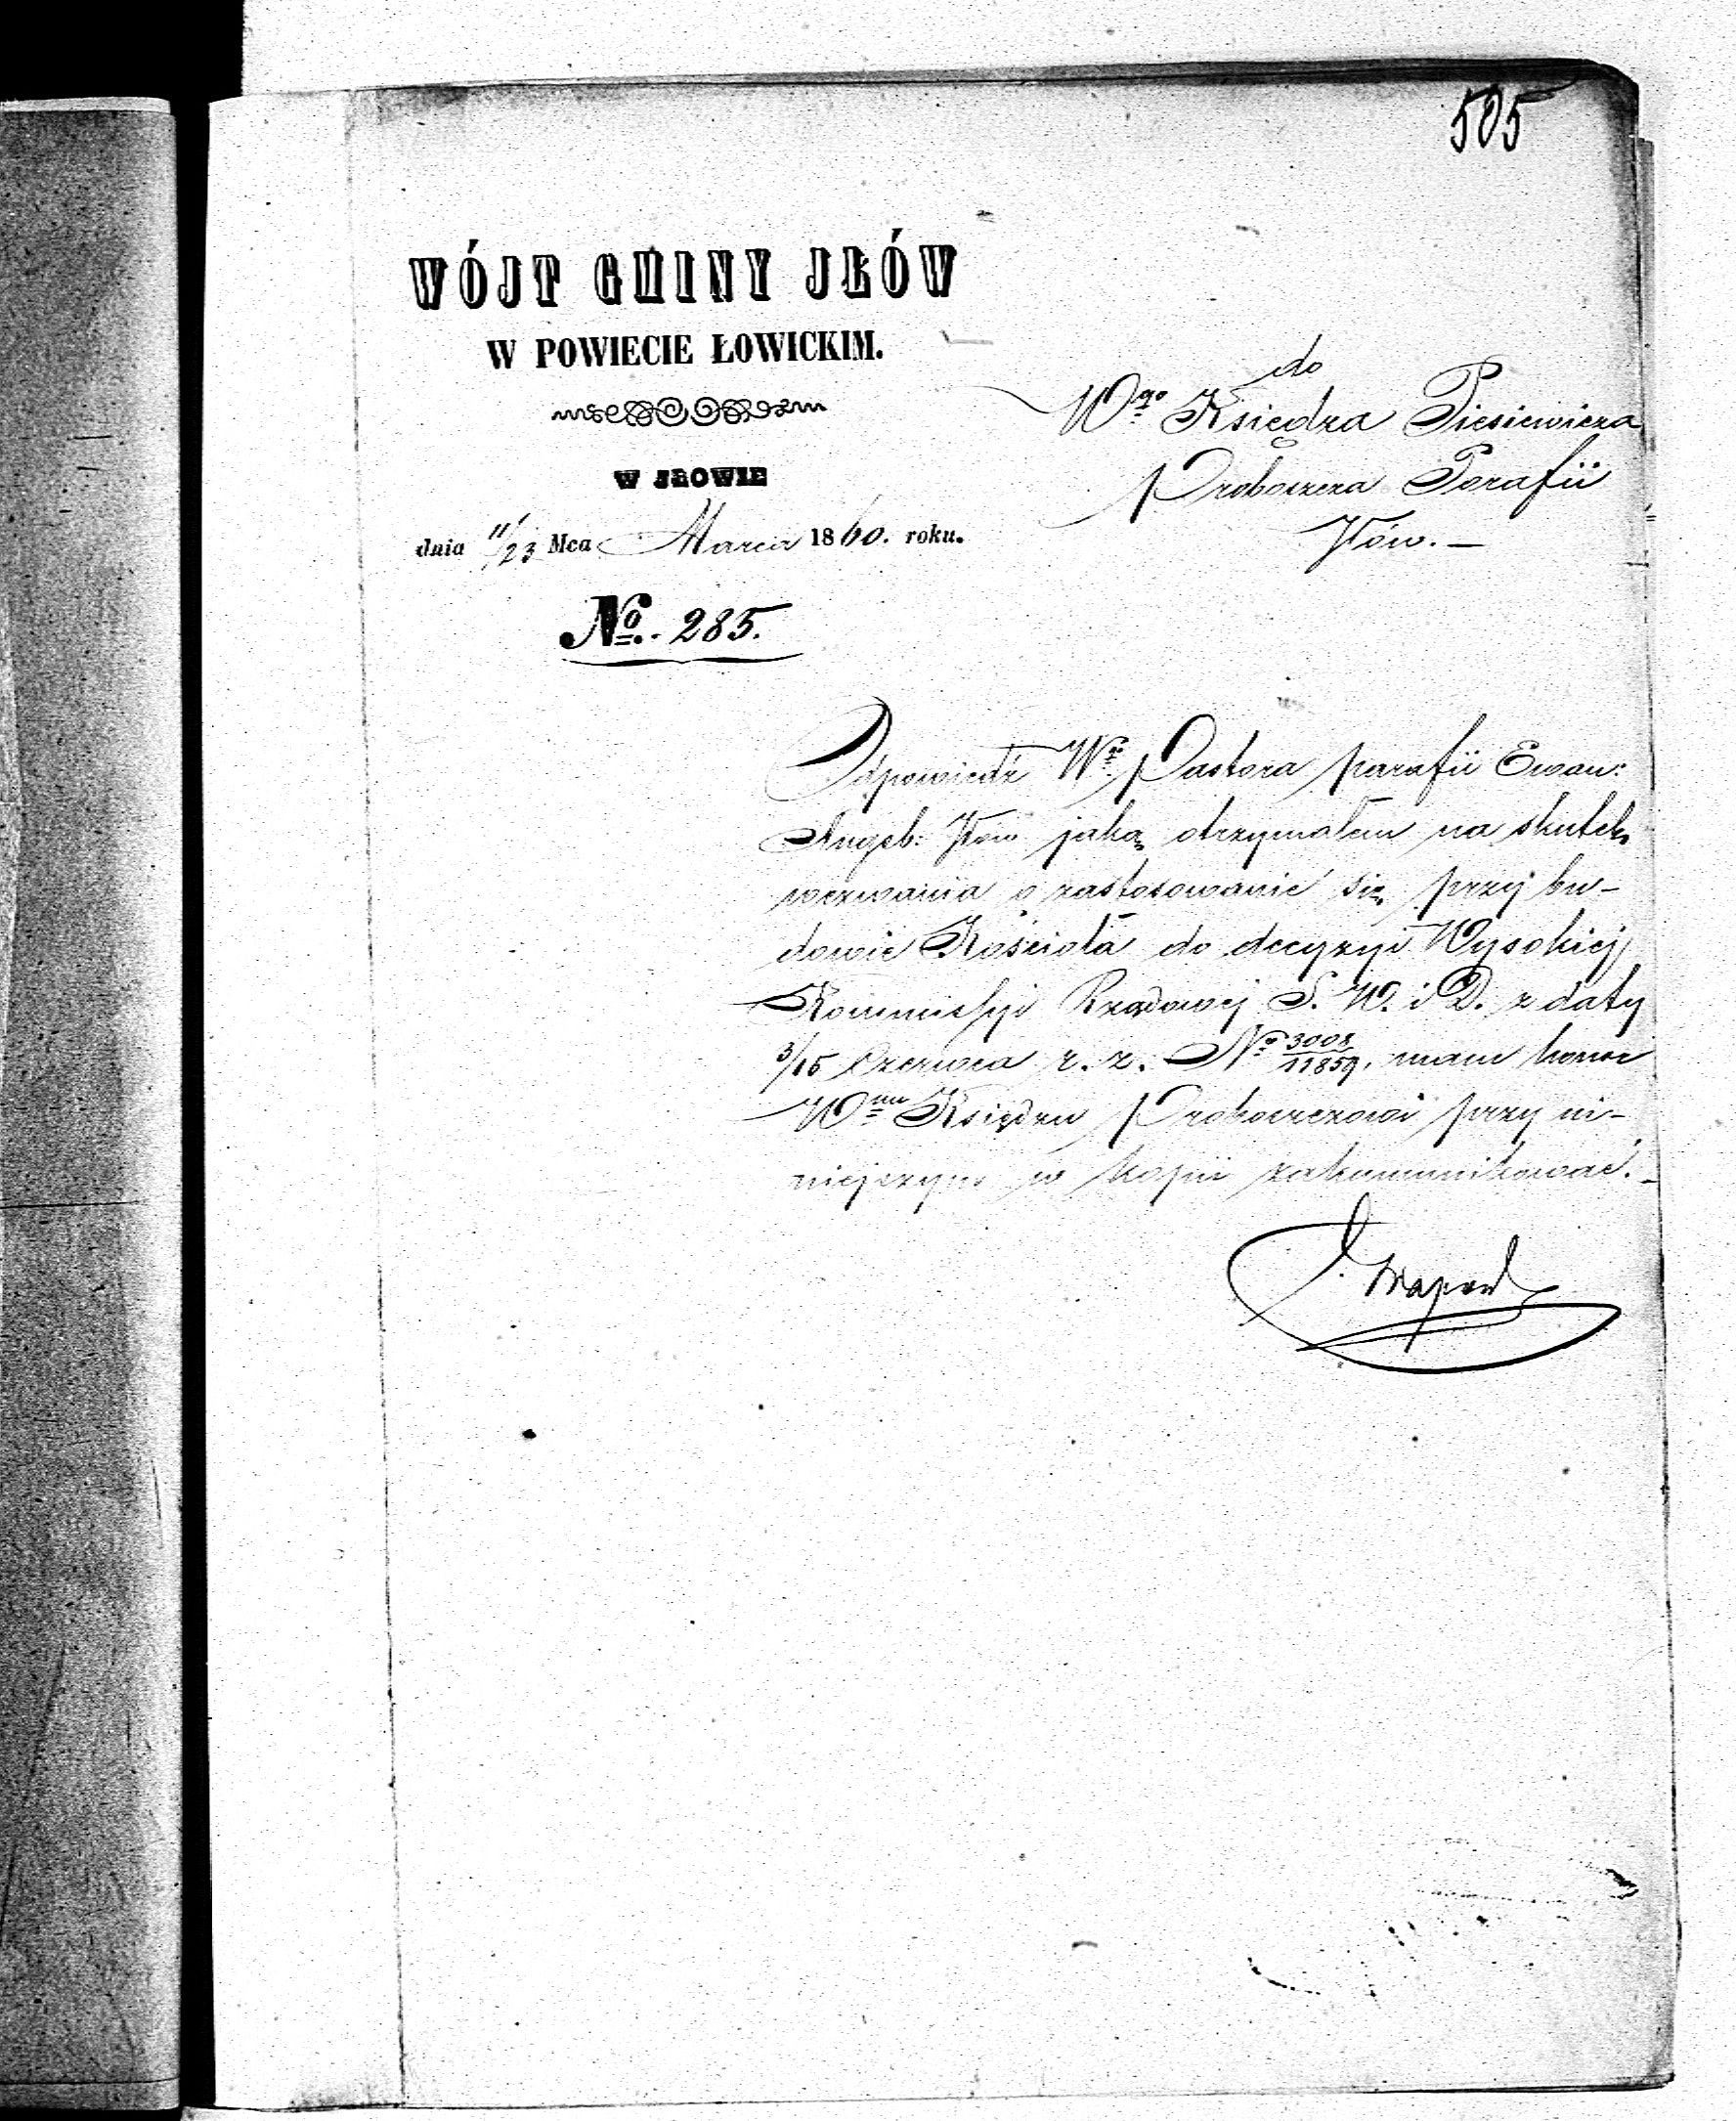 505
WÓJT GMINY JŁÓW
W POWIECIE ŁOWICKIM.
W JŁOWIE
dnia 11/23 Mca Marca 1860. roku.
No. 285.
do
Wgo Księdza Piesiewicza
Proboszcza Parafii
Jłów. —
Odpowiedź Wgo Pastora parafii Ewan:
Augsb: Jłów jaką otrzymałem na skutek
wezwania o zastosowanie się przy bu-
dowie Kościoła do decyzyi Wysokiej
Kommissyi Rządowej S. W. i D. z daty
3/15 Czerwca r. z. No 3008/11859, mam honor
Wmu Księdzu Proboszczowi przy ni-
niejszym w kopii zakommunikować. —